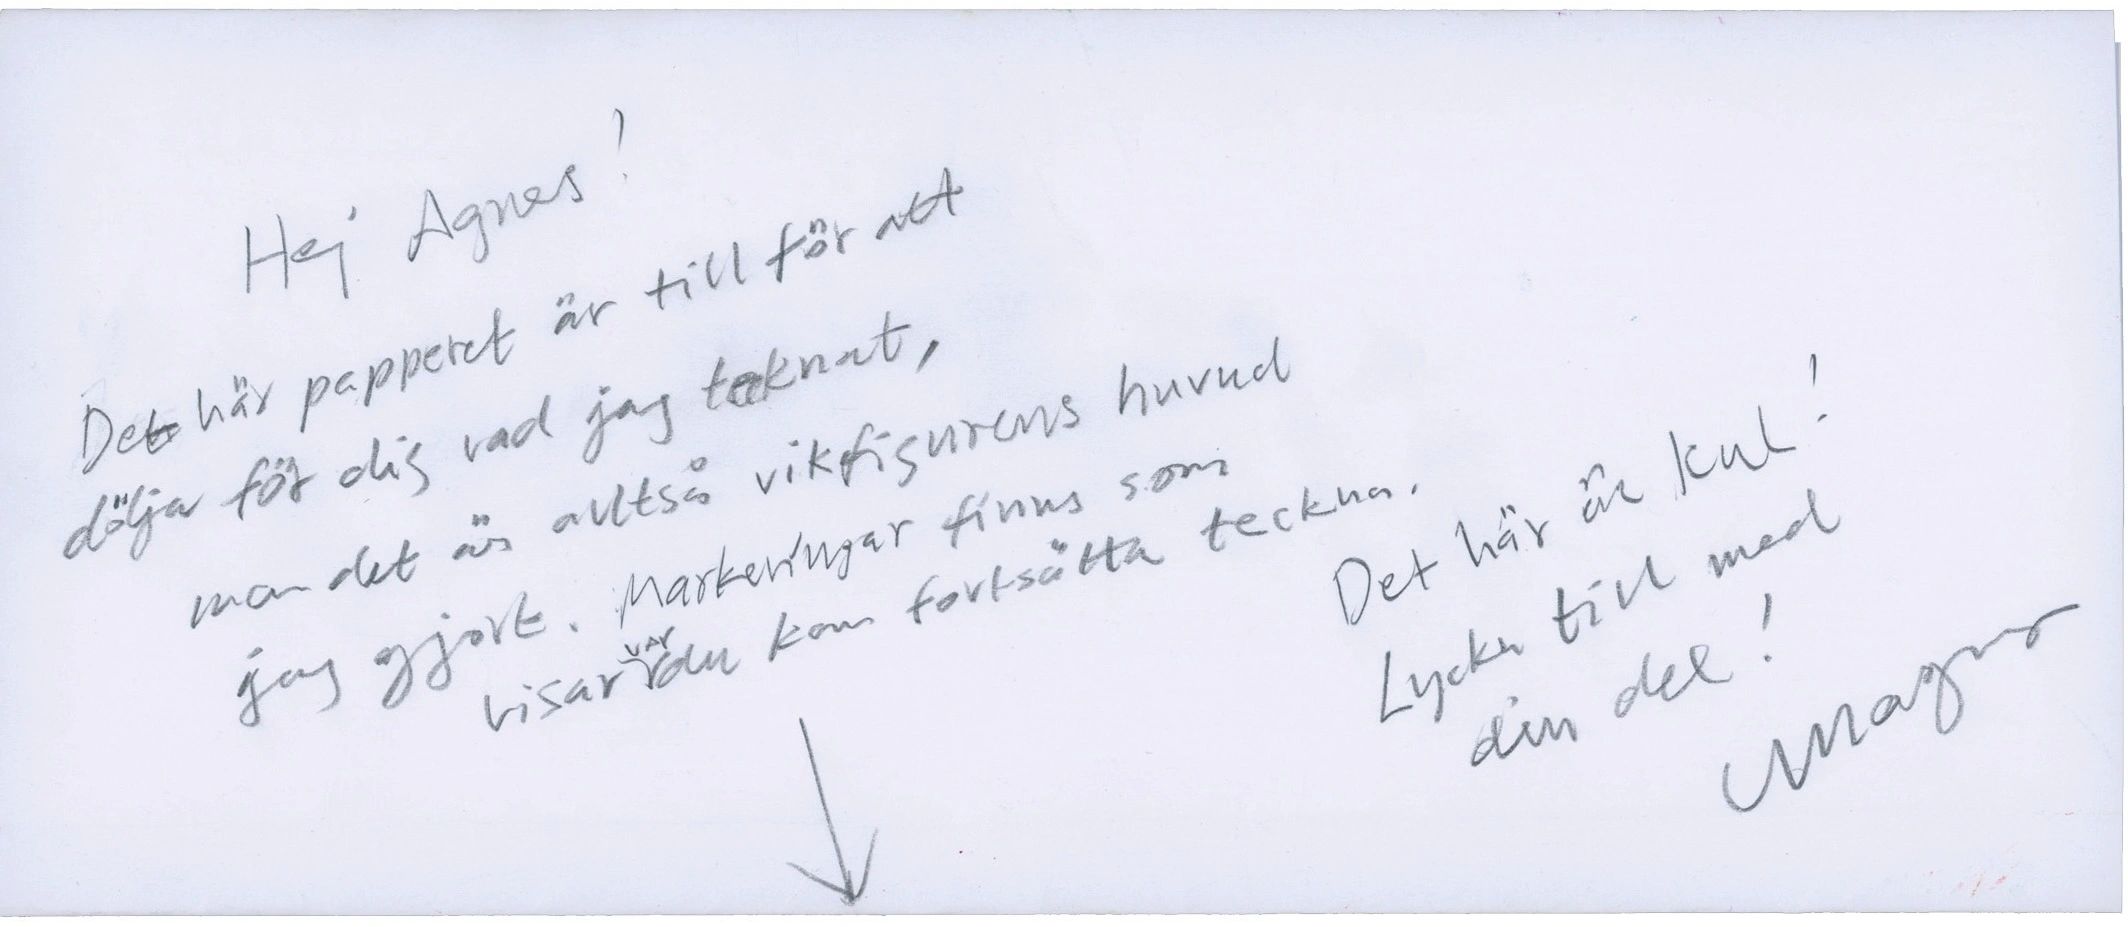 Hej Agnes!
Det här papperet är till för att
dölja för dig vad jag tecknat,
men det är alltså vikfigurens huvud
jag gjort. Markeringar finns som
visar var du kan fortsätta teckna.
Det här är kul!
Lycka till med
din del!
Magnus